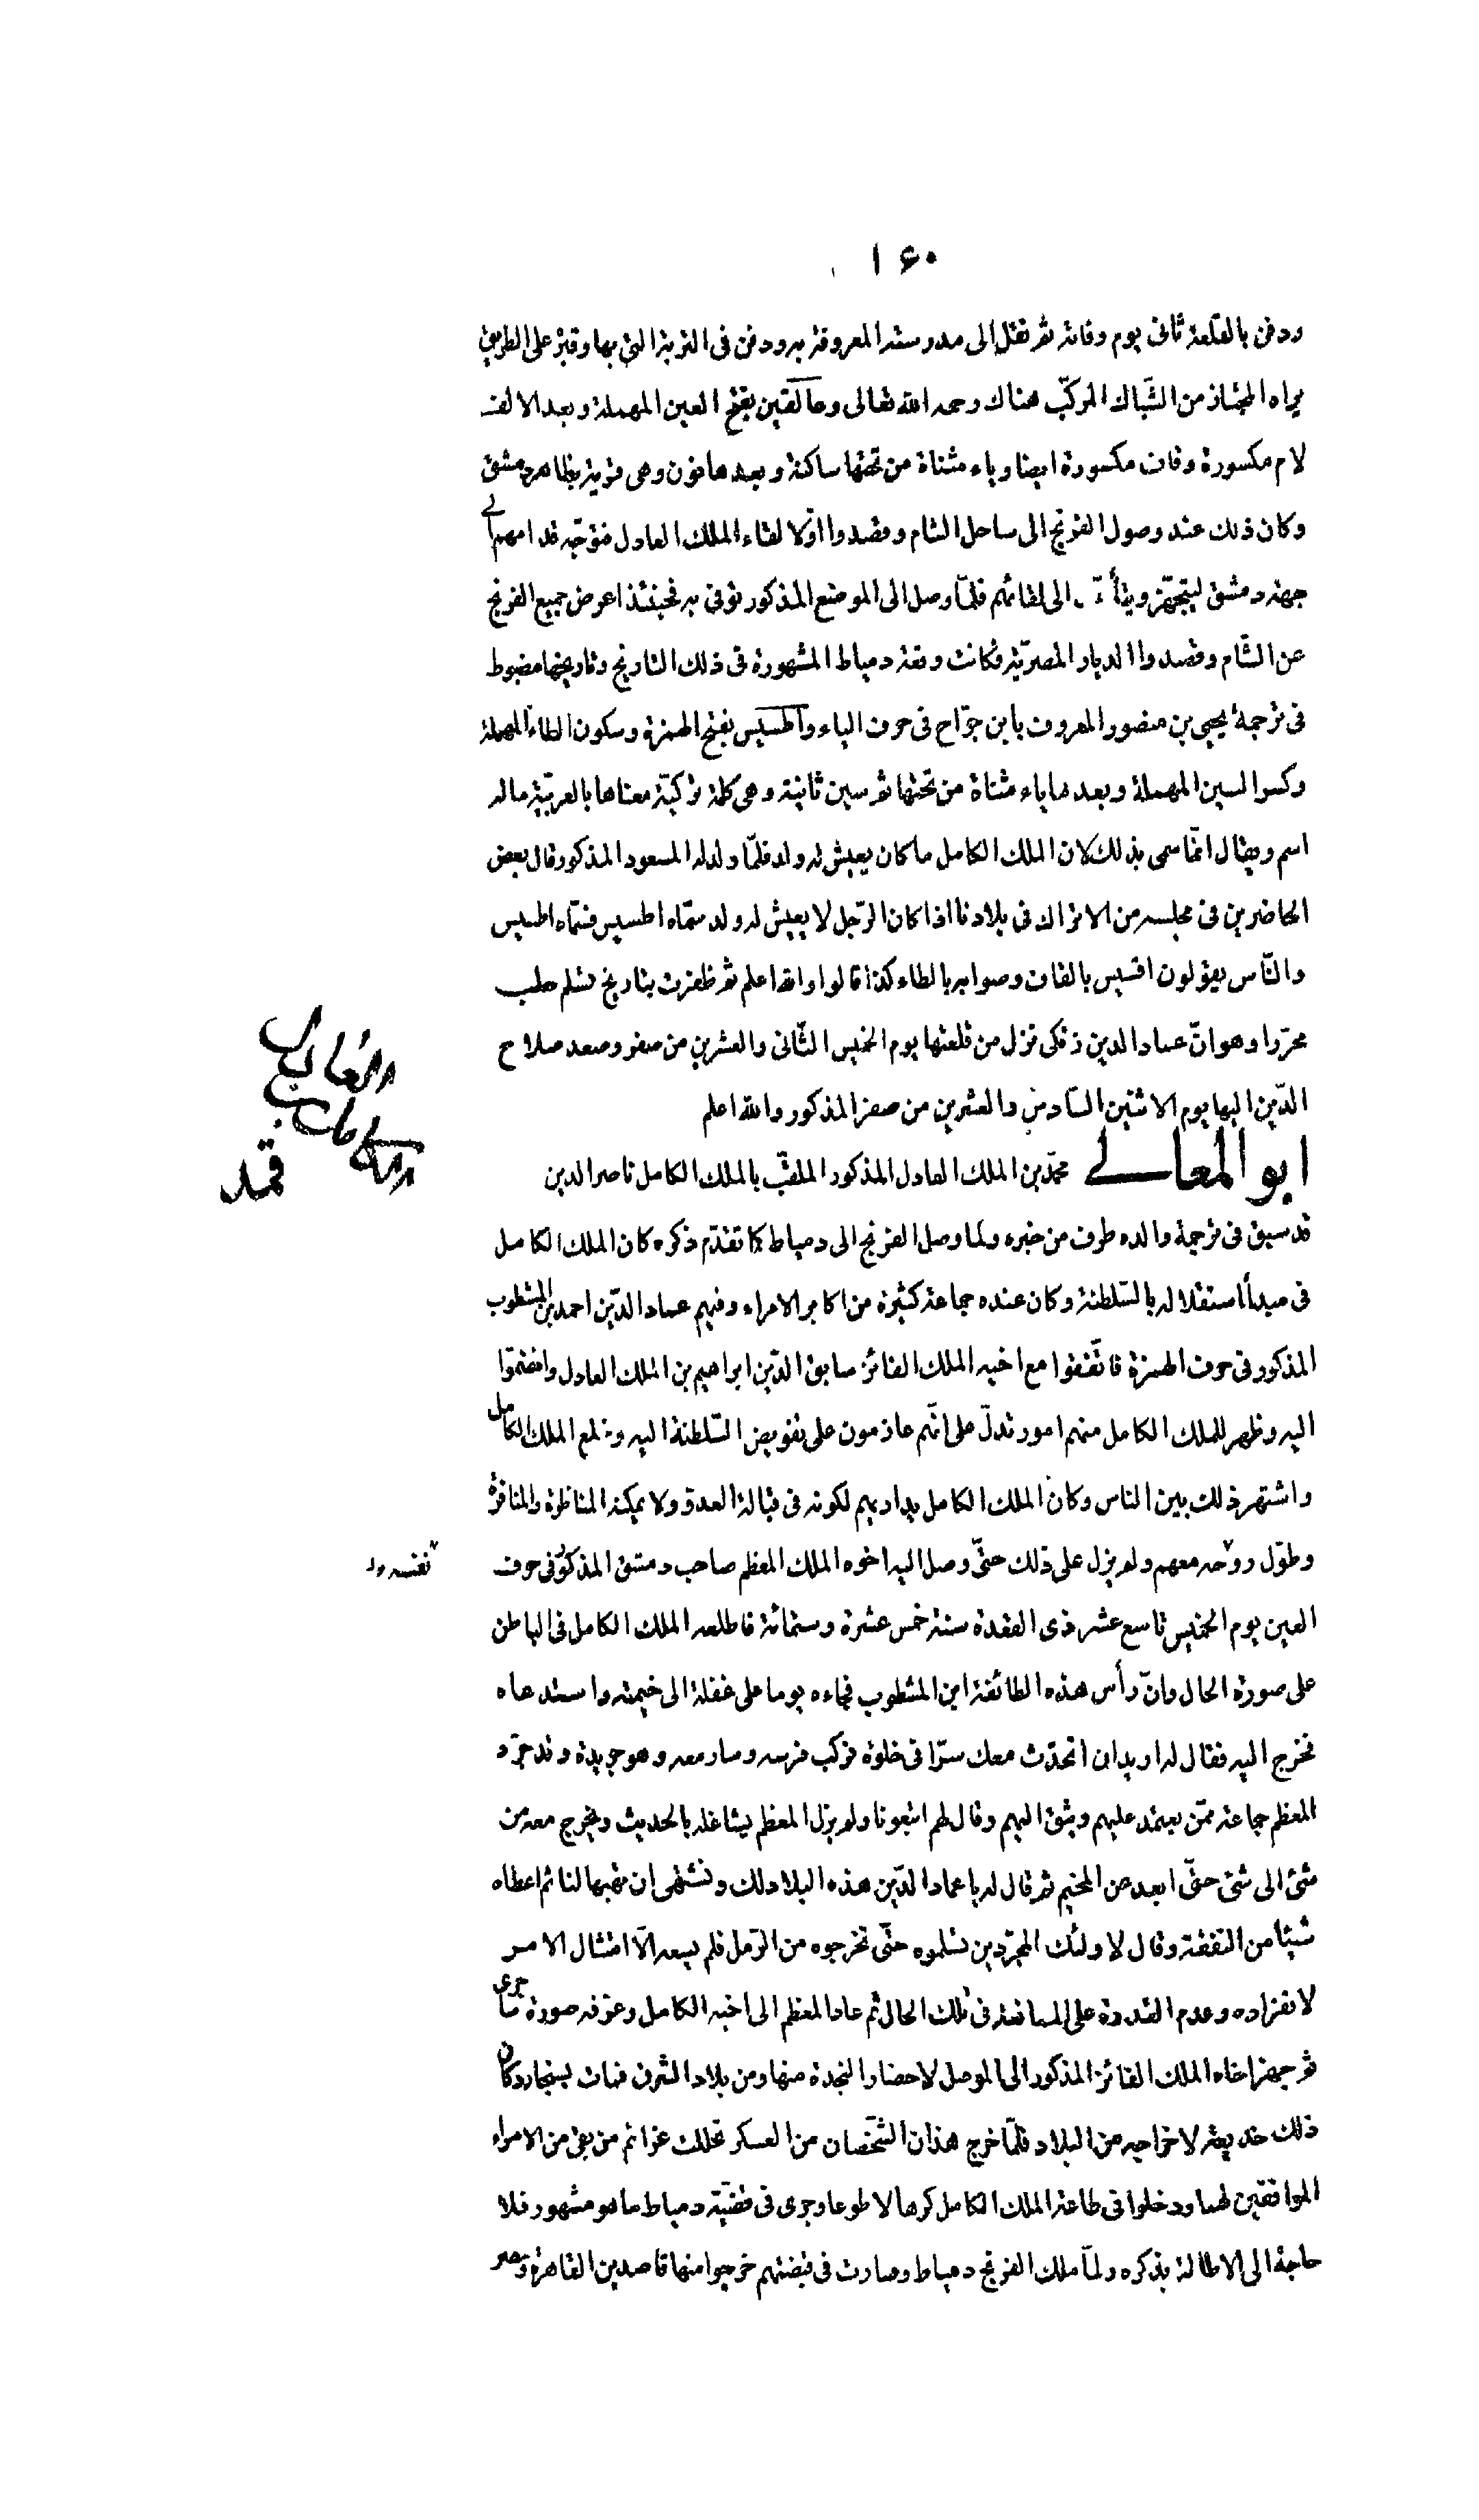 ١٦٠
ودفن بالقلعة ثانى يوم وفاته ثم نقل الى مدرسته المعروفة به ودفن فى التربة التى بها وقبره على الطريق
يراه المجتاز من الشّباك المركّب هناك رحمه الله تعالى وعالقين بفتح العين المهملة وبعد الالف
لام مكسورة وقاف مكسورة ايضا وياء مثناة من تحتها ساكنة وبعدها نون وهى قرية بظاهر دمشق
وكان ذلك عند وصول الفرنج الى ساحل الشام وقصدوا اوّلا لقاء الملك العادل فتوجّه قدامهم الى
جهة دمشق ليتجهّز ويتأ الى لقائهم فلمّا وصل الى الموضع المذكور توفى به فحينئذ اعرض جميع الفرنج
عن الشّام وقصدوا الديار المصريّة فكانت وقعة دمياط المشهورة فى ذلك التاريخ وتاريخها مضبوط
فى ترجمة يحيى بن منصور المعروف بابن جرّاح فى حرف الياء واطسيس بفتح الهمزة وسكون الطاء المهملة
وكسر السين المهملة وبعدها ياء مثناة من تحتها ثم سين ثانية وهى كلمة تركيّة معناها بالعربيّة ماله
اسم ويقال انّما سمى بذلك لان الملك الكامل ما كان يعيش له ولد فلمّا ولد له المسعود المذكور قال بعض
الحاضرين فى مجلسه من الاتراك فى بلادنا اذا كان الرّجل لا يعيش له ولد سمّاه اطسيس فسمّاه اطسيس
والنّاس يقولون اقسيس بالقاف وصوابه بالطاء كذا قالوا والله اعلم ثم ظفرت بتاريخ تسلم حلب
محرّرا وهو انّ عماد الدين زنكى نزل من قلعتها يوم الخميس الثّانى والعشرين من صفر وصعد صلاح
الدّين اليها يوم الاثنين السّادس والعشرين من صفر المذكور والله اعلم
ابو المعالى محمّد بن الملك العادل المذكور الملقّب بالملك الكامل ناصر الدين
قد سبق فى ترجمة والده طرف من خبره ولما وصل الفرنج الى دمياط كما تقدّم ذكره كان الملك الكامل
فى مبدأ استقلاله بالسّلطنة وكان عنده جماعة كثيرة من اكابر الامراء وفيهم عماد الدّين احمد بن المشطوب
المذكور فى حرف الهمزة فاتّفقوا مع اخيه الملك الفائز سابق الدّين ابراهيم بن الملك العادل وانضمّوا
اليه وظهر للملك الكامل منهم امور تدلّ على انّهم عازمون على تفويض السّلطنة اليه وخلع الملك الكامل
واشتهر ذلك بين الناس وكان الملك الكامل يداريهم لكونه فى قبالة العدو ولا يمكنه المناظرة والمنافرة
وطوّل روحه معهم ولم يزل على ذلك حتّى وصل اليه اخوه الملك المعظم صاحب دمشق المذكور فى حرف
نفسه
العين يوم الخميس تاسع عشر ذى القعدة سنة خمس عشرة وستمائة فاطلعه الملك الكامل فى الباطن
على صورة الحال وانّ رأس هذه الطائفة ابن المشطوب فجاءه يوما على غفلة الى خيمته واستدعاه
فخرج اليه فقال له اريد ان اتحدّث معك سرّا فى خلوة فركب فرسه وسار معه وهو جريدة وقد جرّد
المعظم جماعة ممّن يعتمد عليهم ويثق اليهم وقال لهم اتبعونا ولم يزل المعظم يشاغله بالحديث ويخرج معه من
شئ الى شئ حتّى ابعد عن المخيم ثم قال له يا عماد الدّين هذه البلاد لك ونشتهى ان تهبها لنا ثم اعطاه
شيئا من النّفقة وقال لاولئك المجرّدين تسلموه حتّى تخرجوه من الرّمل فلم يسعه الّا امتثال الامر
لانفراده وعدم القدرة على الممانعة فى تلك الحال ثم عاد المعظم الى اخيه الكامل وعرّفه صورة ما جرى
ثم جهز اخاه الملك الفائز المذكور الى الموصل لاحضار النجدة منها ومن بلاد الشرق فمات بسنجار وكان
ذلك خديعة لاخراجه من البلاد فلمّا خرج هذان الشّخصان من العسكر تحللت عزائم من بقى من الامراء
الموافقين لهما ودخلوا فى طاعة الملك الكامل كرها لا طوعا وجرى فى قضيّة دمياط ما هو مشهور فلا
حاجة الى الاطالة بذكره ولمّا ملك الفرنج دمياط وصارت فى قبضتهم خرجوا منها قاصدين القاهرة ومصر